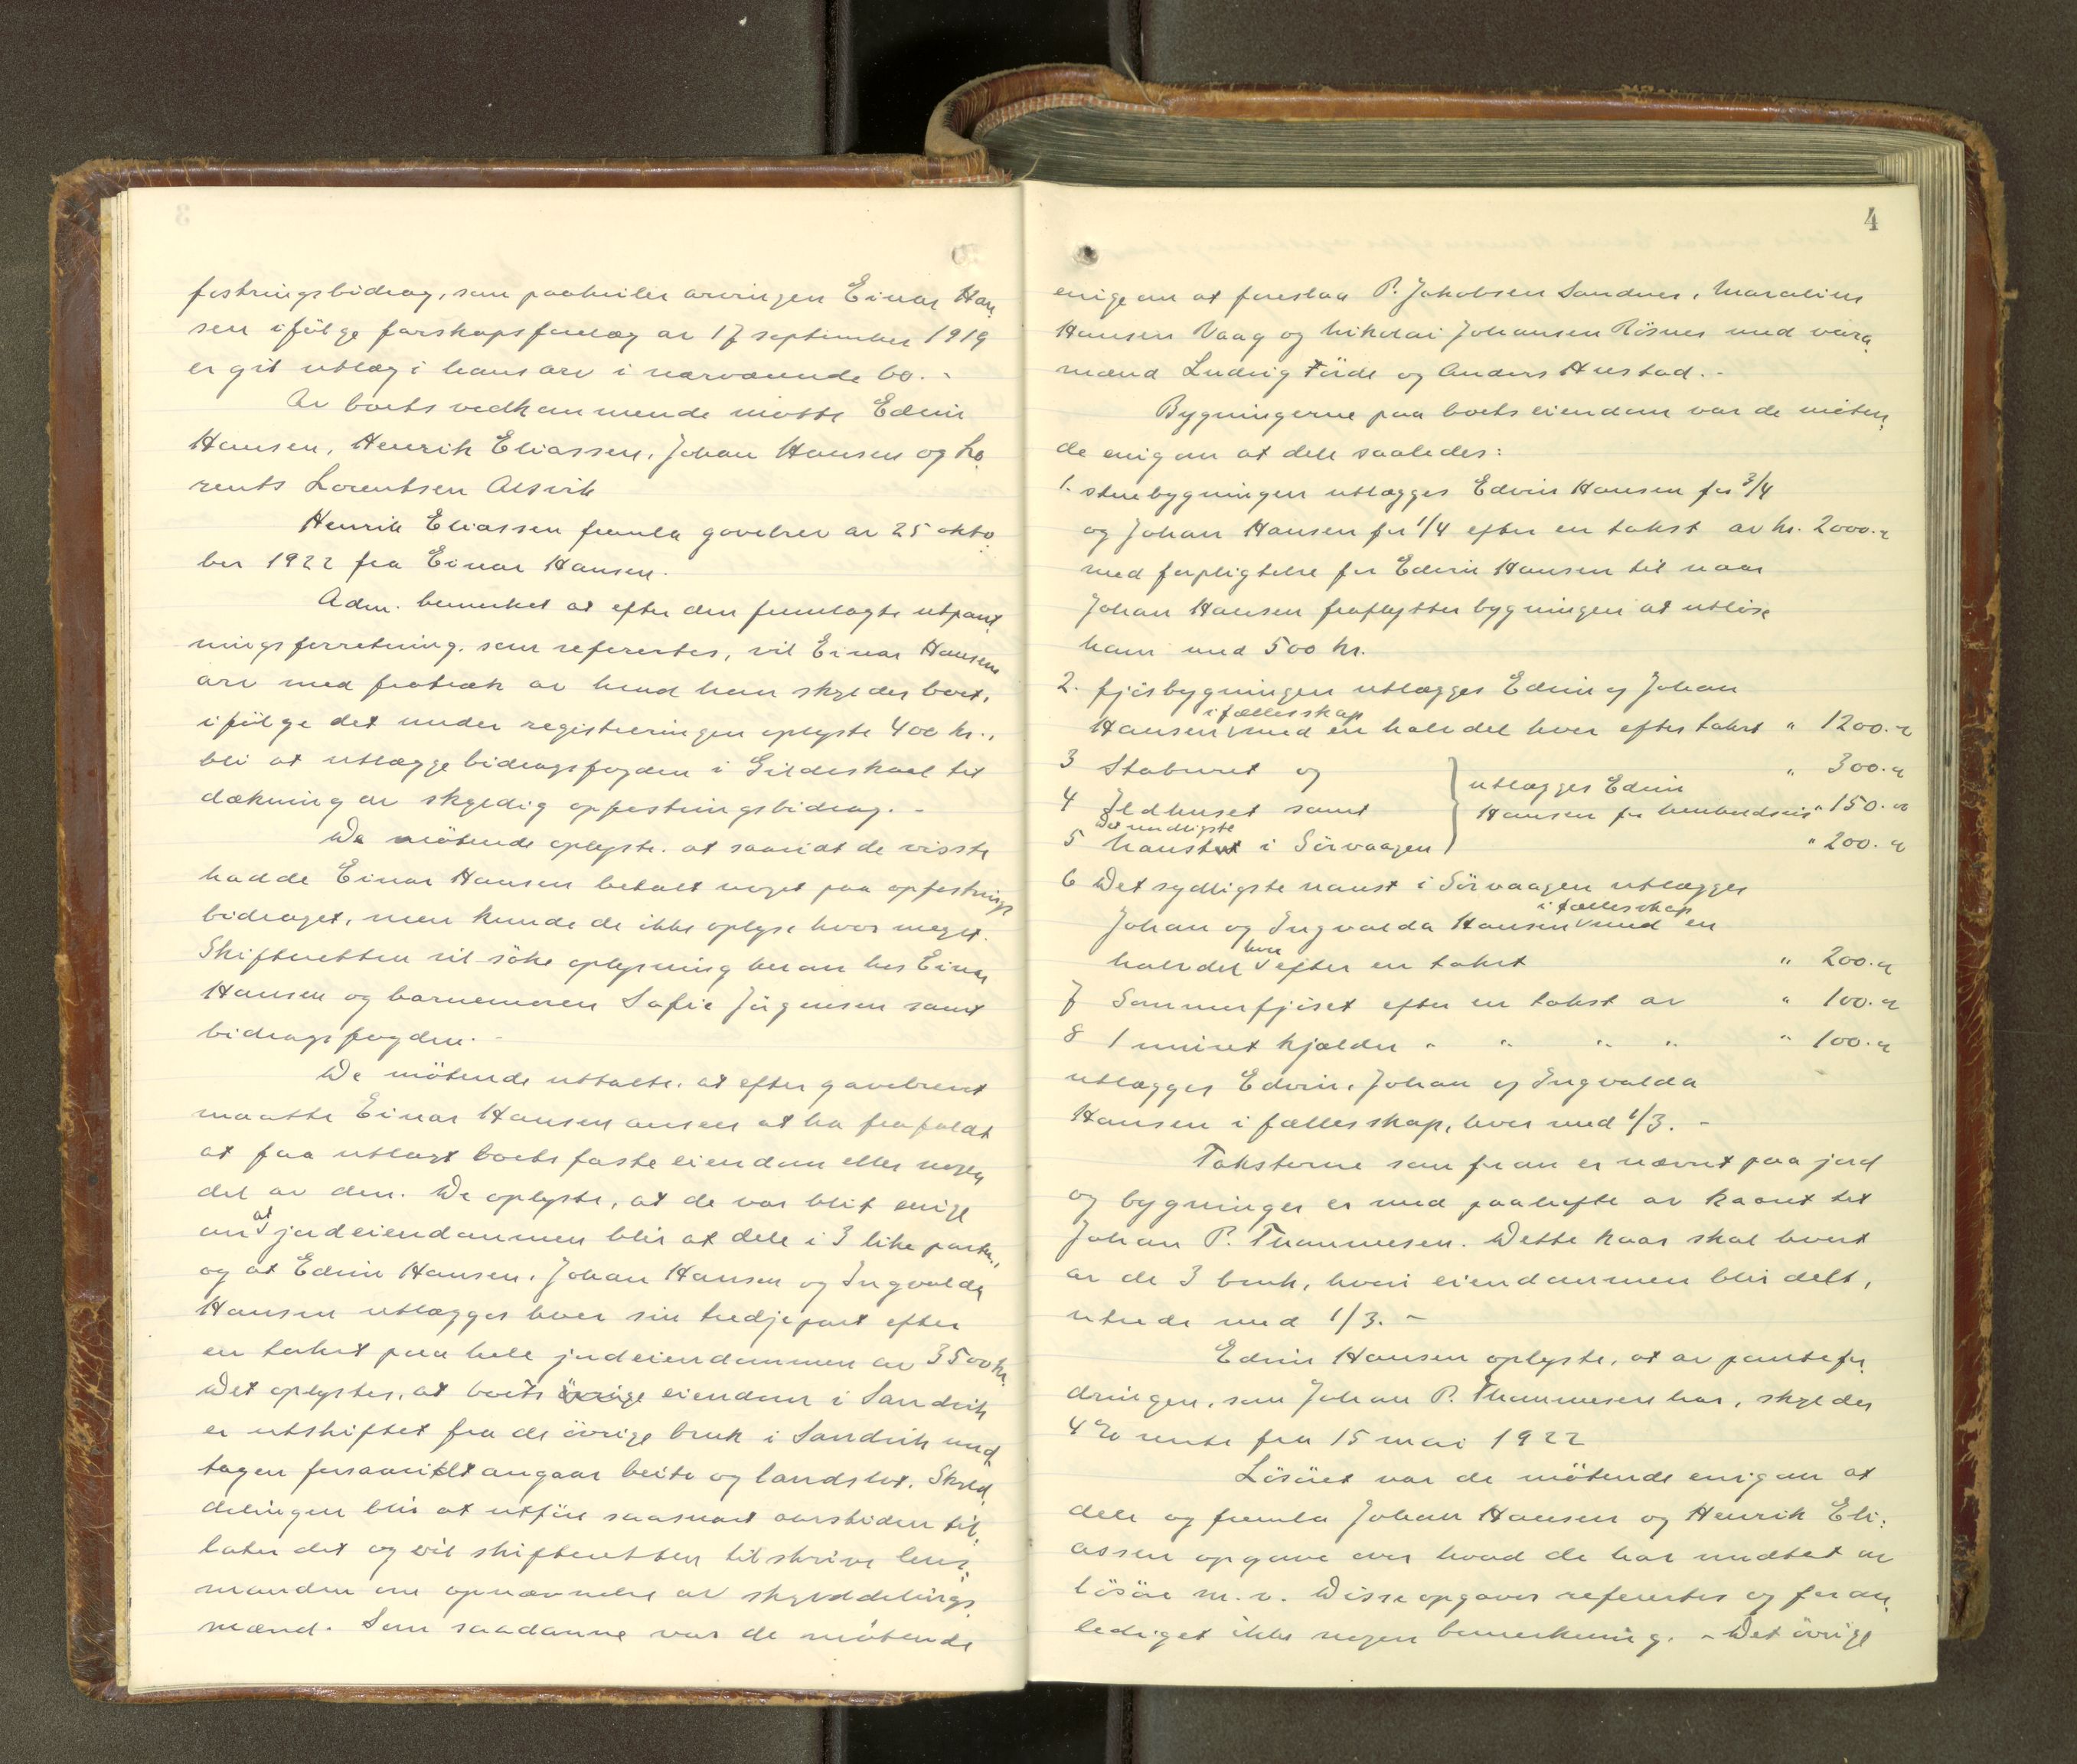 fostringsbidrag, som paahviler arvingen Einar Han„
sen ifölge farskapsforelæg av 17 september 1919
er git utlæg i hans arv i nærværende bo. -
Av boets vedkommende mötte Edvin
Hansen, Henrik Eliassen, Johan Hansen og Lo„
rents Lorentsen Alsvik
Henrik Eliassen fremla gavebrev av 25 okto„
ber 1922 fra Einar Hansen.
Adm. bemerket at efter den fremlagte utpant„
ningsforretning, som refereertes, vil Einar Hansens
arv med fratræk av hvad han skylder boet,
ifölge det under registreringen oplyste 400 kr.,
bli at utlægge bidragsfogden i Gildeskaal til
dækning av skyldig opfostringsbidrag. -
De mötende oplyste, at saavidt de visste
hadde Einar Hansen betalt noget paa opfostrings„
bidraget, men kunde de ikke oplyse hvor meget.
Skifteretten vil söke oplysning herom hos Einar
Hansen og barnemoren Sofie Jörgensen samt
bidragsfogden. -
De mötende uttalte, at efter gavebrevet
maatte Einar Hansen ansees at ha frafaldt
at faa utlagt boets faste eiendom eller nogen
del av den. De oplyste, at de var blit enige
om at jordeiendommen blir at dele i 3 like parter,
og at Edvin Hansen, Johan Hansen og Ingvalda
Hansen utlægges hver sin tredjepart efter
en takst paa hele jordeiendommen av 3500 kr.
Det oplystes, at boets övrige eiendom i Sandvik
er utskiftet fra de övrige bruk i Sandvik und„
tagen forsaavidt angaar beite og landslot. Skyld„
delingen blir at utföre saasnart aarstiden til„
later det og vil skifteretten tilskrive lens„
manden om opnævnelse av skylddelings„
mænd. Som saadanne var de mötende
4
enige om at foreslaa P. Jakobsen Sandnes, Maralius
Hansen Vaag og Nikolai Johansen Rösnes med vara„
mænd Ludvig Förde og Anders Hustad. -
Bygningerne paa boets eiendom var de möten„
de enig om at dele saaledes:
1. stuebygningen utlægges Edvin Hansen for 3/4
og Johan Hansen for 1/4 efter en takst av kr. 2000.-
med forpligtelse for Edvin Hansen til naar
Johan Hansen fraflytter bygningen at utlöse
ham med 500 kr.
2. fjösbygningen utlægges Edvin og Johan
Hansen i fællesskap med en halvdel hver efter takst " 1200.-
3 Staburet og " 300.-
4 Ildhuset samt } utlægges Edvin Hansen for henholdsvis " 150.-
5 Det nordligste naustet i Sörvaagen " 200.-
6 Det sydligste naust i Sörvaagen utlægges
Johan og Ingvalda Hansen i fællesskap med en
halvdel hver efter en takst " 200.-
7 Sommerfjöset efter en takst av " 100.-
8 1 muret kjælder " " " " " 100.-
utlægges Edvin, Johan og Ingvalda
Hansen i fællesskap, hver med 1/3. -
Taksterne som foran er nævnt paa jord
og bygninger er med paahefte av kaaret til
Johan P. Thommesen. Dette kaar skal hvert
av de 3 bruk, hvori eiendommen blir delt,
utrede med 1/3. -
Edvin Hansen oplyste, at av pantefor„
dringen, som Johan P. Thommesen har, skyldes
4 % rente fra 15 mai 1922
Lösöret var de mötende enig om at
dele og fremla Johan Hansen og Henrik Eli„
assen opgave over hvad de har mottat av
lösöre m. v. Disse opgaver refereertes og foran„
lediget ikke nogen bemerkning. - Det övrige